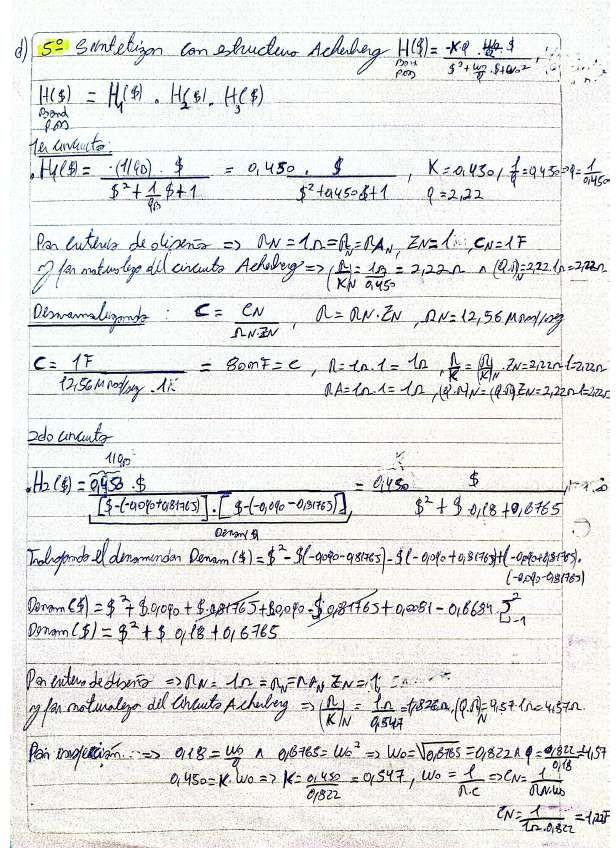 d) 5º Sintetizar con estructura Ackerberg H($) = -K·Q·ω₀·$ / $² + ω₀/Q·$ + ω₀²
Band
Pas
H($) = H₁($) · H₂($) · H₃($)
Band
Pas
1er circuito:
H₁($) = -(1/QB)·$ / $² + 1/QB $ + 1 = 0,450 · $ / $² + 0,450 $ + 1 , K = 0,450 / 1/Q = 0,450 ⇒ Q = 1/0,450
Q = 2,22
Por criterio de diseño ⇒ RN = 1Ω = RN = RAN, ZN = 1, CN = 1F
y por naturaleza del circuito Ackerberg ⇒ (R/K)N = 1Ω/0,450 = 2,22Ω ∧ (Q.R)N = 2,22.1Ω = 2,22Ω
Desnormalizando : C = CN / ΩN·ZN , R = RN·ZN , ΩN = 12,56 M rad/seg
C = 1F / 12,56 M rad/seg · 1K = 80nF = C , R = 1Ω.1 = 1Ω , R/K = (R/K)N · ZN = 2,22Ω.1 = 2,22Ω
RA = 1Ω.1 = 1Ω , (Q.R)N = (Q.R) ZN = 2,22Ω.1 = 2,22Ω
2do circuito
1/QB
H₂($) = 0,450 · $ / [$-(-0,090+0,81765)] · [$-(-0,090-0,81765)] = 0,450 $ / $² + $ 0,18 + 0,6765
Denom($)
Trabajando el denominador Denom($) = $² - $(-0,090-0,81765) - $(-0,090+0,81765) + (-0,090+0,81765).
(-0,090-0,81765)
Denom($) = $² + $.0,090 + $.0,81765 + $.0,090 - $ 0,81765 + 0,0081 - 0,6684 J²
-1
Denom($) = $² + $ 0,18 + 0,6765
Por criterio de diseño ⇒ RN = 1Ω = RN = RAN ZN = 1
y por naturaleza del Circuito Ackerberg ⇒ (R/K)N = 1Ω/0,547 = 1,828Ω, (Q.R)N = 4,57.1Ω = 4,57Ω.
Por inspección ⇒ 0,18 = ω₀/Q ∧ 0,6765 = ω₀² ⇒ ω₀ = √0,6765 = 0,822 ∧ Q = 0,822/0,18 = 4,57
0,450 = K.ω₀ ⇒ K = 0,450/0,822 = 0,547, ω₀ = 1/R.C ⇒ CN = 1/RN.ω₀
CN = 1/1Ω.0,822 = 1,22F